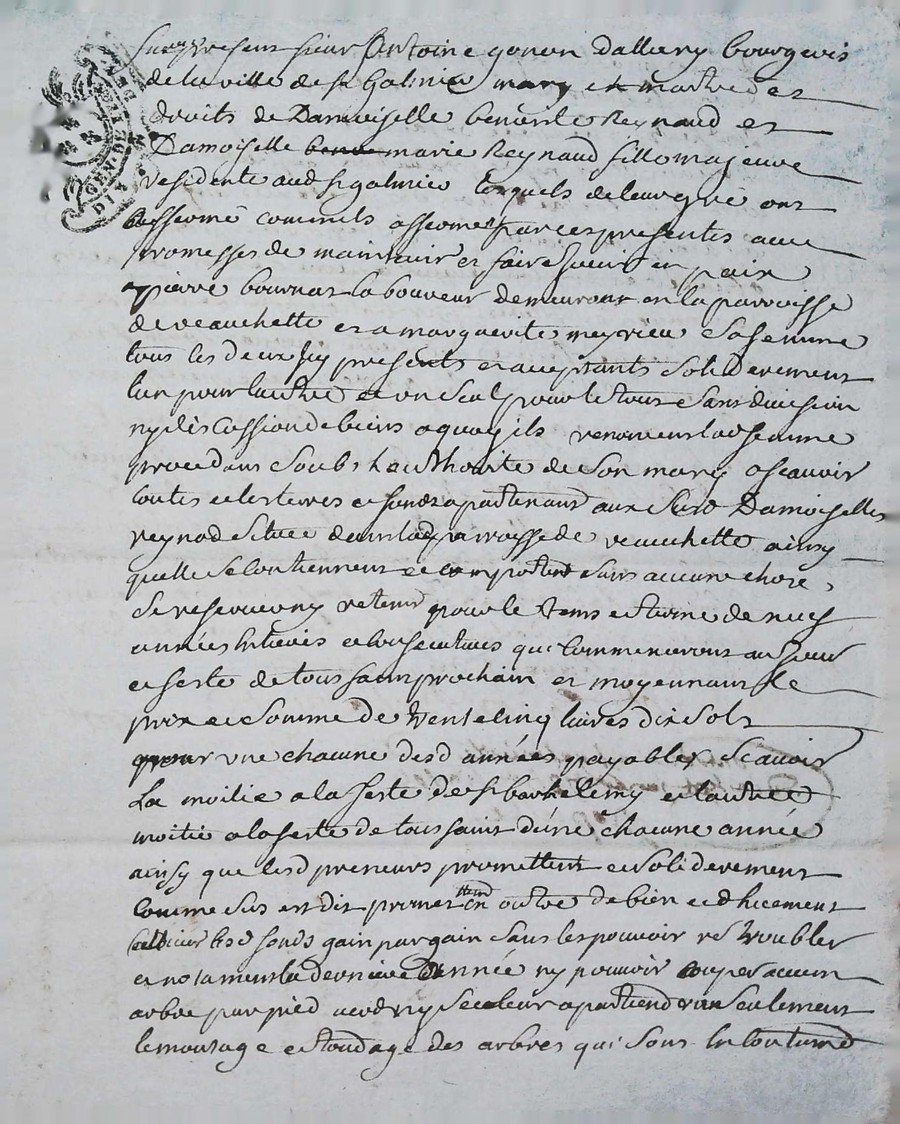 Furent presens sieur Antoine gonon dallery bourgeois
de la ville de st Galmier mary et maitre des
droits de Damoiselle benoiste Reynaud et
Damoiselle marie Reynaud fille majeure
residente aud st galmier lesquels de leur gré ont
assermé comme ils asserment par ces presentes avec
promesses de maintenir et faire jouir en paix
a pierre bournat laboureur demeurant en la parroisse
de veauchette et a marguerite meyrieu sa femme
tous les deux icy presents et acceptants soliderement
lun pour lautre et un seul pour le tout sans division
ny discussion de biens a quoy ils renoncent lad femme
procedant soubs lauthorité de son mary a scavoir
toutes et les terres et fonds apartenant aux Damoiselles
reynod situee dans lad parroisse de veauchette ainsy
quelle se contiennent et comportent sans aucune chose
se reserver ny retenir pour le tems et terme de neuf
années entieres et consecutives qui commenceront au jour
et feste de toussaint prochain et moyennant le
prix et somme de trente cinq livres dix sols
pour une chacune desd années payables scavoir
La moitie a la feste de st barthelemy et lautre
moitié a la feste de toussaint dune chacune année
ainsy que lesd preneurs promettent et soliderement
comme sus est dit promettent en outre de bien et dhuement
cultiver lesd fonds gain par gain sans les pouvoir retroubler
et notament la derniere année ny pouvoir couper aucun
arbre par pied verd ny sec leur apartiendra seulement
le mousage et tondage des arbres qui sont en coutume